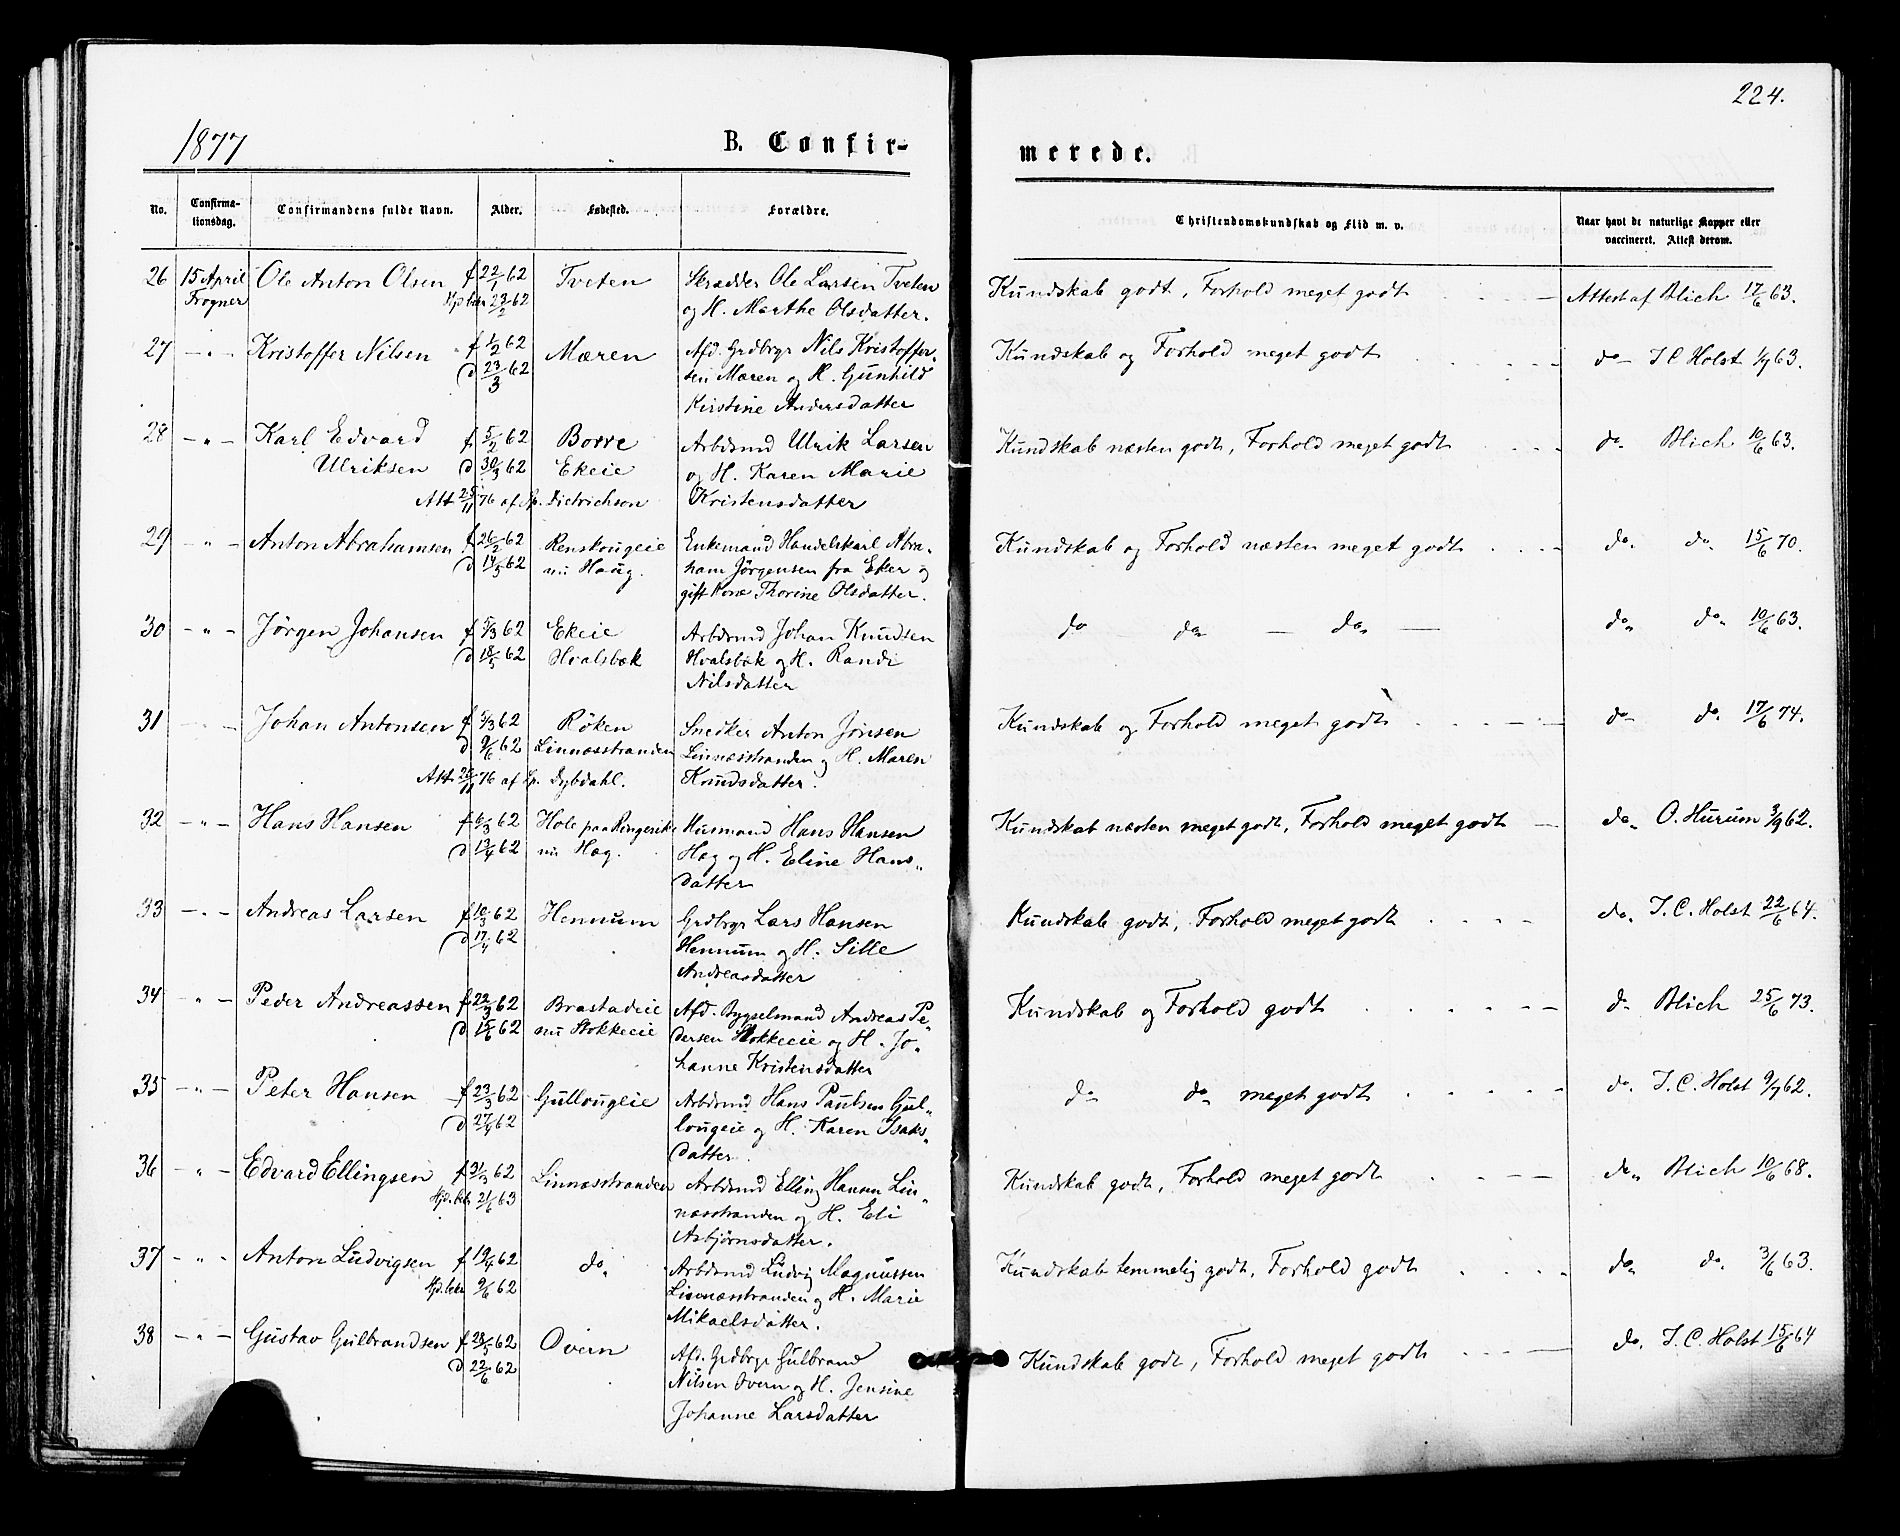 224.
1877
B. Confir-
merede.
No. Confirma-tionsdag. Confirmandens fulde Navn. Alder. Fødested. Forældre. Christendomskundskab og Flid m. v. Naar havt de naturlige Kopper eller vaccineret. Attest derom.
26 15 April Ole Anton Olsen f 22/1 62 Tveten Skrædder Ole Larsen Tveten Kundskab godt, Forhold meget godt Attest af Blich 17/6 63.
Frogner Hjd. bekr 23/2 62 og H. Marthe Olsdatter.
27 -"- Kristoffer Nilsen f 1/2 62 Mæren Afd. Grdbrgr Nils Kristoffer- Kundskab og Forhold meget godt do J C Holst 1/9 63.
d 23/3 62 sen Mæren og H. Gunhild
Kirstine Andersdatter
28 -"- Karl Edvard f 5/2 62 Borre Arbdsmd Ulrik Larsen Kundskab næsten godt, Forhold meget godt do Blich 10/6 63.
Ulriksen d 30/3 62 Ekeie og H. Karen Marie
Att 25/11 76 af Sp. Dietrichson Kristensdatter
29 -"- Anton Abrahamsen f 26/2 62 Renskougeie Enkemand Handelskarl Abra- Kundskab og Forhold næsten meget godt do. do. 15/6 70.
d 14/5 62 nu Haug. ham Jørgensen fra Eker og
gift Kone Thorine Olsdatter.
30 -"- Jørgen Johansen f 5/3 62 Ekeie Arbdsmd Johan Knudsen do do — do — do. do. 10/6 63.
d 18/5 62 Hvalsbæk Hvalsbæk og H. Randi
Nilsdatter
31 -"- Johan Antonsen f 5/3 62 Røken Snedker Anton Jonsen Kundskab og Forhold meget godt do do. 17/6 74.
d. 9/6 62 Linnæsstranden Linnæsstranden og H. Maren
Att 26/11 76 af Sp. Dybdahl. Knudsdatter.
32 -"- Hans Hansen f 6/3 62 Hole paa Ringerike Husmand Hans Hansen Kundskab næsten meget godt, Forhold meget godt do. O. Hurum 3/9 62.
d 13/4 62 nu Hæg. Hæg og H. Eline Hans-
datter
33 -"- Andreas Larsen f 10/3 62 Hennum Grdbrgr Lars Hansen Kundskab godt, Forhold meget godt do. J. C. Holst 22/6 64.
d 17/4 62 Hennum og H. Sille
Andreasdatter
34 -"- Peder Andreassen f 22/3 62 Brastadeie Afd. Bygselmand Andreas Pe- Kundskab og Forhold godt do Blich 25/6 73.
d 15/6 62 nu Stokkeeie dersen Stokkeeie og H. Jo-
hanne Kristensdatter
35 -"- Peter Hansen f 23/3 62 Gullougeie Arbdsmd Hans Paulsen Gul- do do meget godt do. J. C. Holst 9/9 62.
d 27/4 62 lougeie og H. Karen Isaks-
datter.
36 -"- Edvard Ellingsen f 31/3 62 Linnæsstranden Arbdsmd Elling Hansen Lin- Kundskab godt, Forhold meget godt do. Blich 10/6 68.
Hjd. bek. 21/6 63 næsstranden og H. Eli
Asbjørnsdatter.
37 -"- Anton Ludvigsen f 19/4 62 do. Arbdsmd Ludvig Magnussen Kundskab temmelig godt, Forhold godt do. do. 3/6 63.
Hjd. bekr 9/6 62 Linnæsstranden og H. Marie
Mikaelsdatter.
38 -"- Gustav Gulbrandsen f 28/5 62 Overn Afd. Grdbrgr Gulbrand Kundskab godt, Forhold meget godt do. J. C. Holst 15/6 64
d 22/6 62 Nilsen Overn og H. Jensine
Johanne Larsdatter